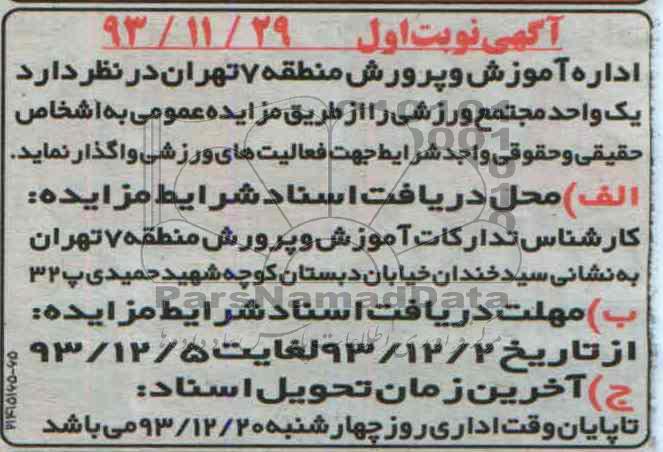 آگهی نوبت اول ۹۳/۱۱/۲۹
اداره آموزش و پرورش منطقه ۷ تهران در نظر دارد
یک واحد مجتمع ورزشی را از طریق مزایده عمومی به اشخاص
حقیقی و حقوقی واجد شرایط جهت فعالیت های ورزشی واگذار نماید.
الف) محل دریافت اسناد شرایط مزایده:
کارشناس تدارکات آموزش و پرورش منطقه ۷ تهران
به نشانی سید خندان خیابان دبستان کوچه شهید حمیدی پ ۳۲
ParsNamadData
ب) مهلت دریافت اسناد شرایط مزایده:
از تاریخ ۹۳/۱۲/۲ لغایت ۹۳/۱۲/۵
ج) آخرین زمان تحویل اسناد:
تا پایان وقت اداری روز چهارشنبه ۹۳/۱۲/۲۰ می باشد